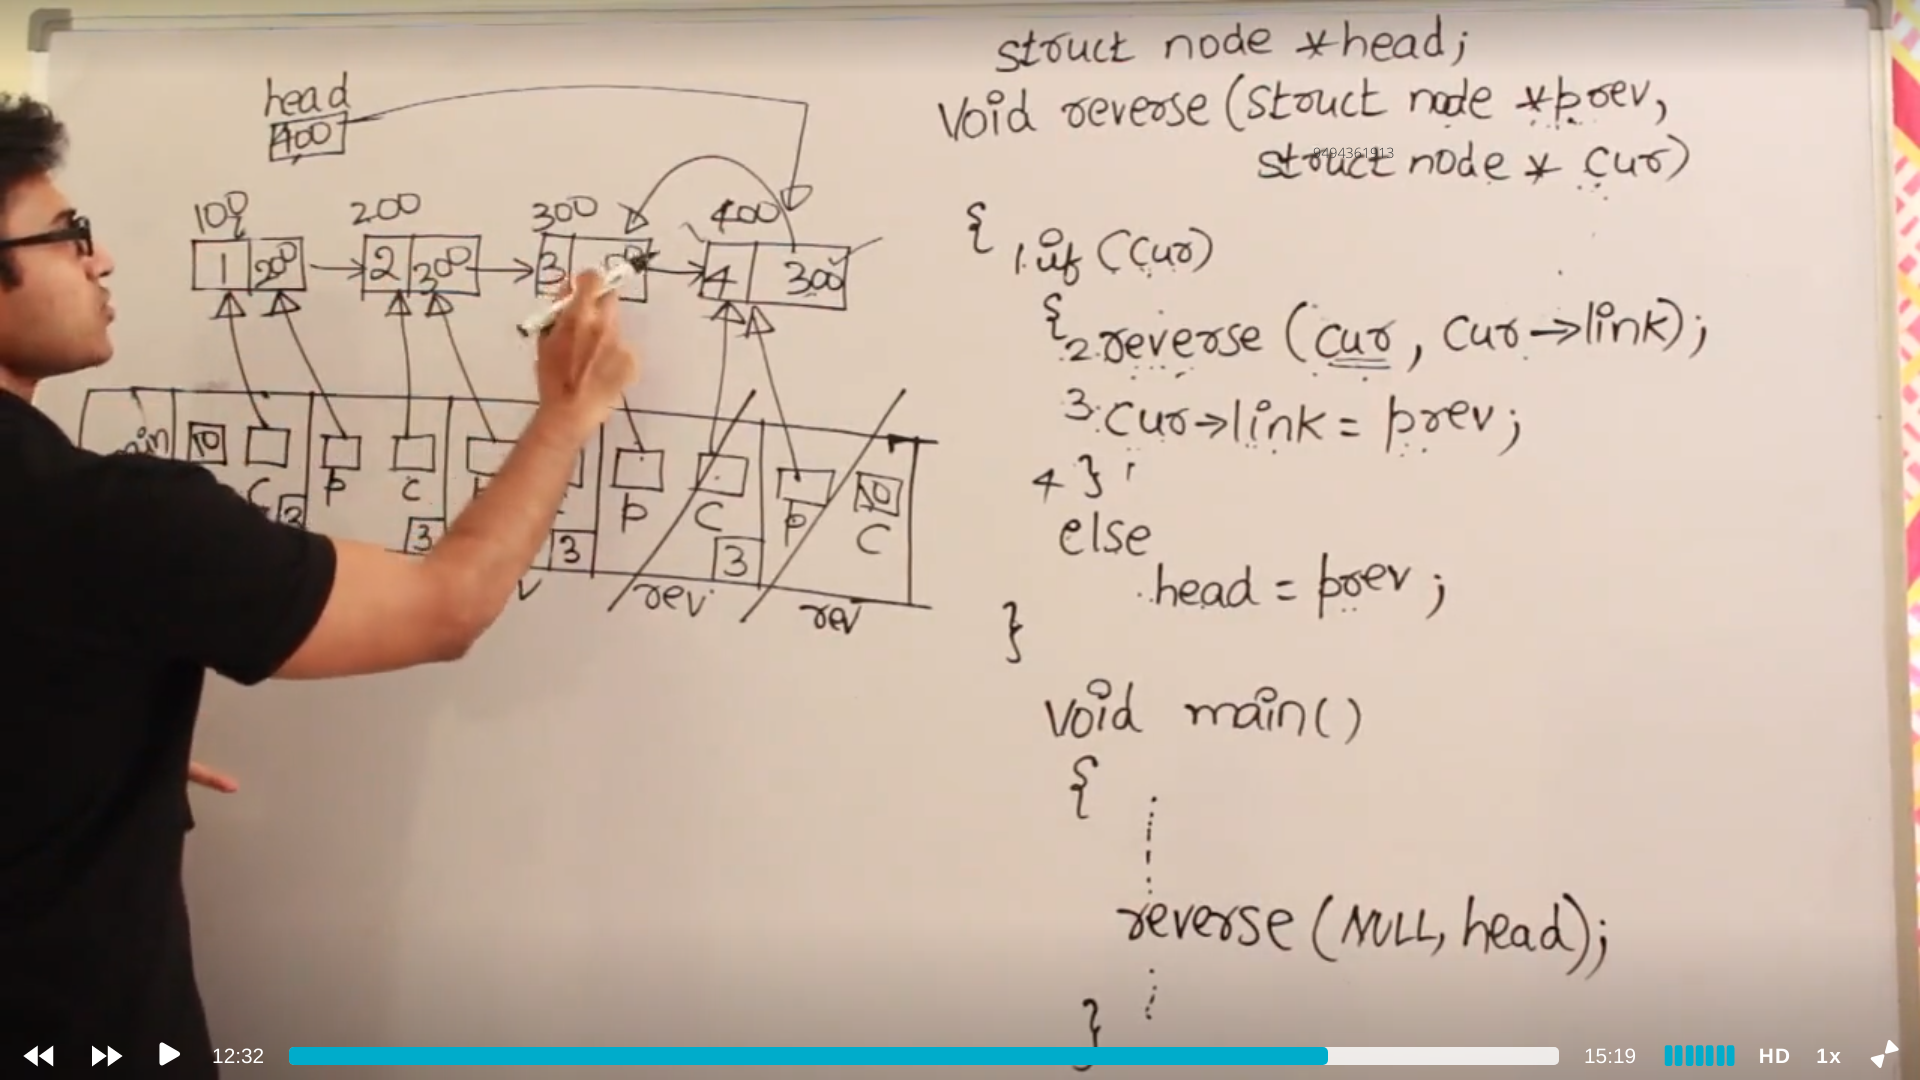 head
400
100 200 300 400
1 200 2 300 3 4 300
10
C P C P C P C
3 3 3 3
10
rev rev
struct node *head;
Void reverse (struct node *prev,
struct node * cur)
9494361913
{
1. if (cur)
{
2. reverse (cur, cur→link);
3. cur→link = prev;
4 }
else
head = prev;
}
Void main()
{
reverse (NULL, head);
}
12:32
15:19
HD
1x